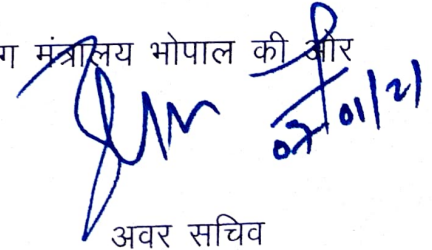 ग मंत्रालय भोपाल की ओर
07/01/21
अवर सचिव